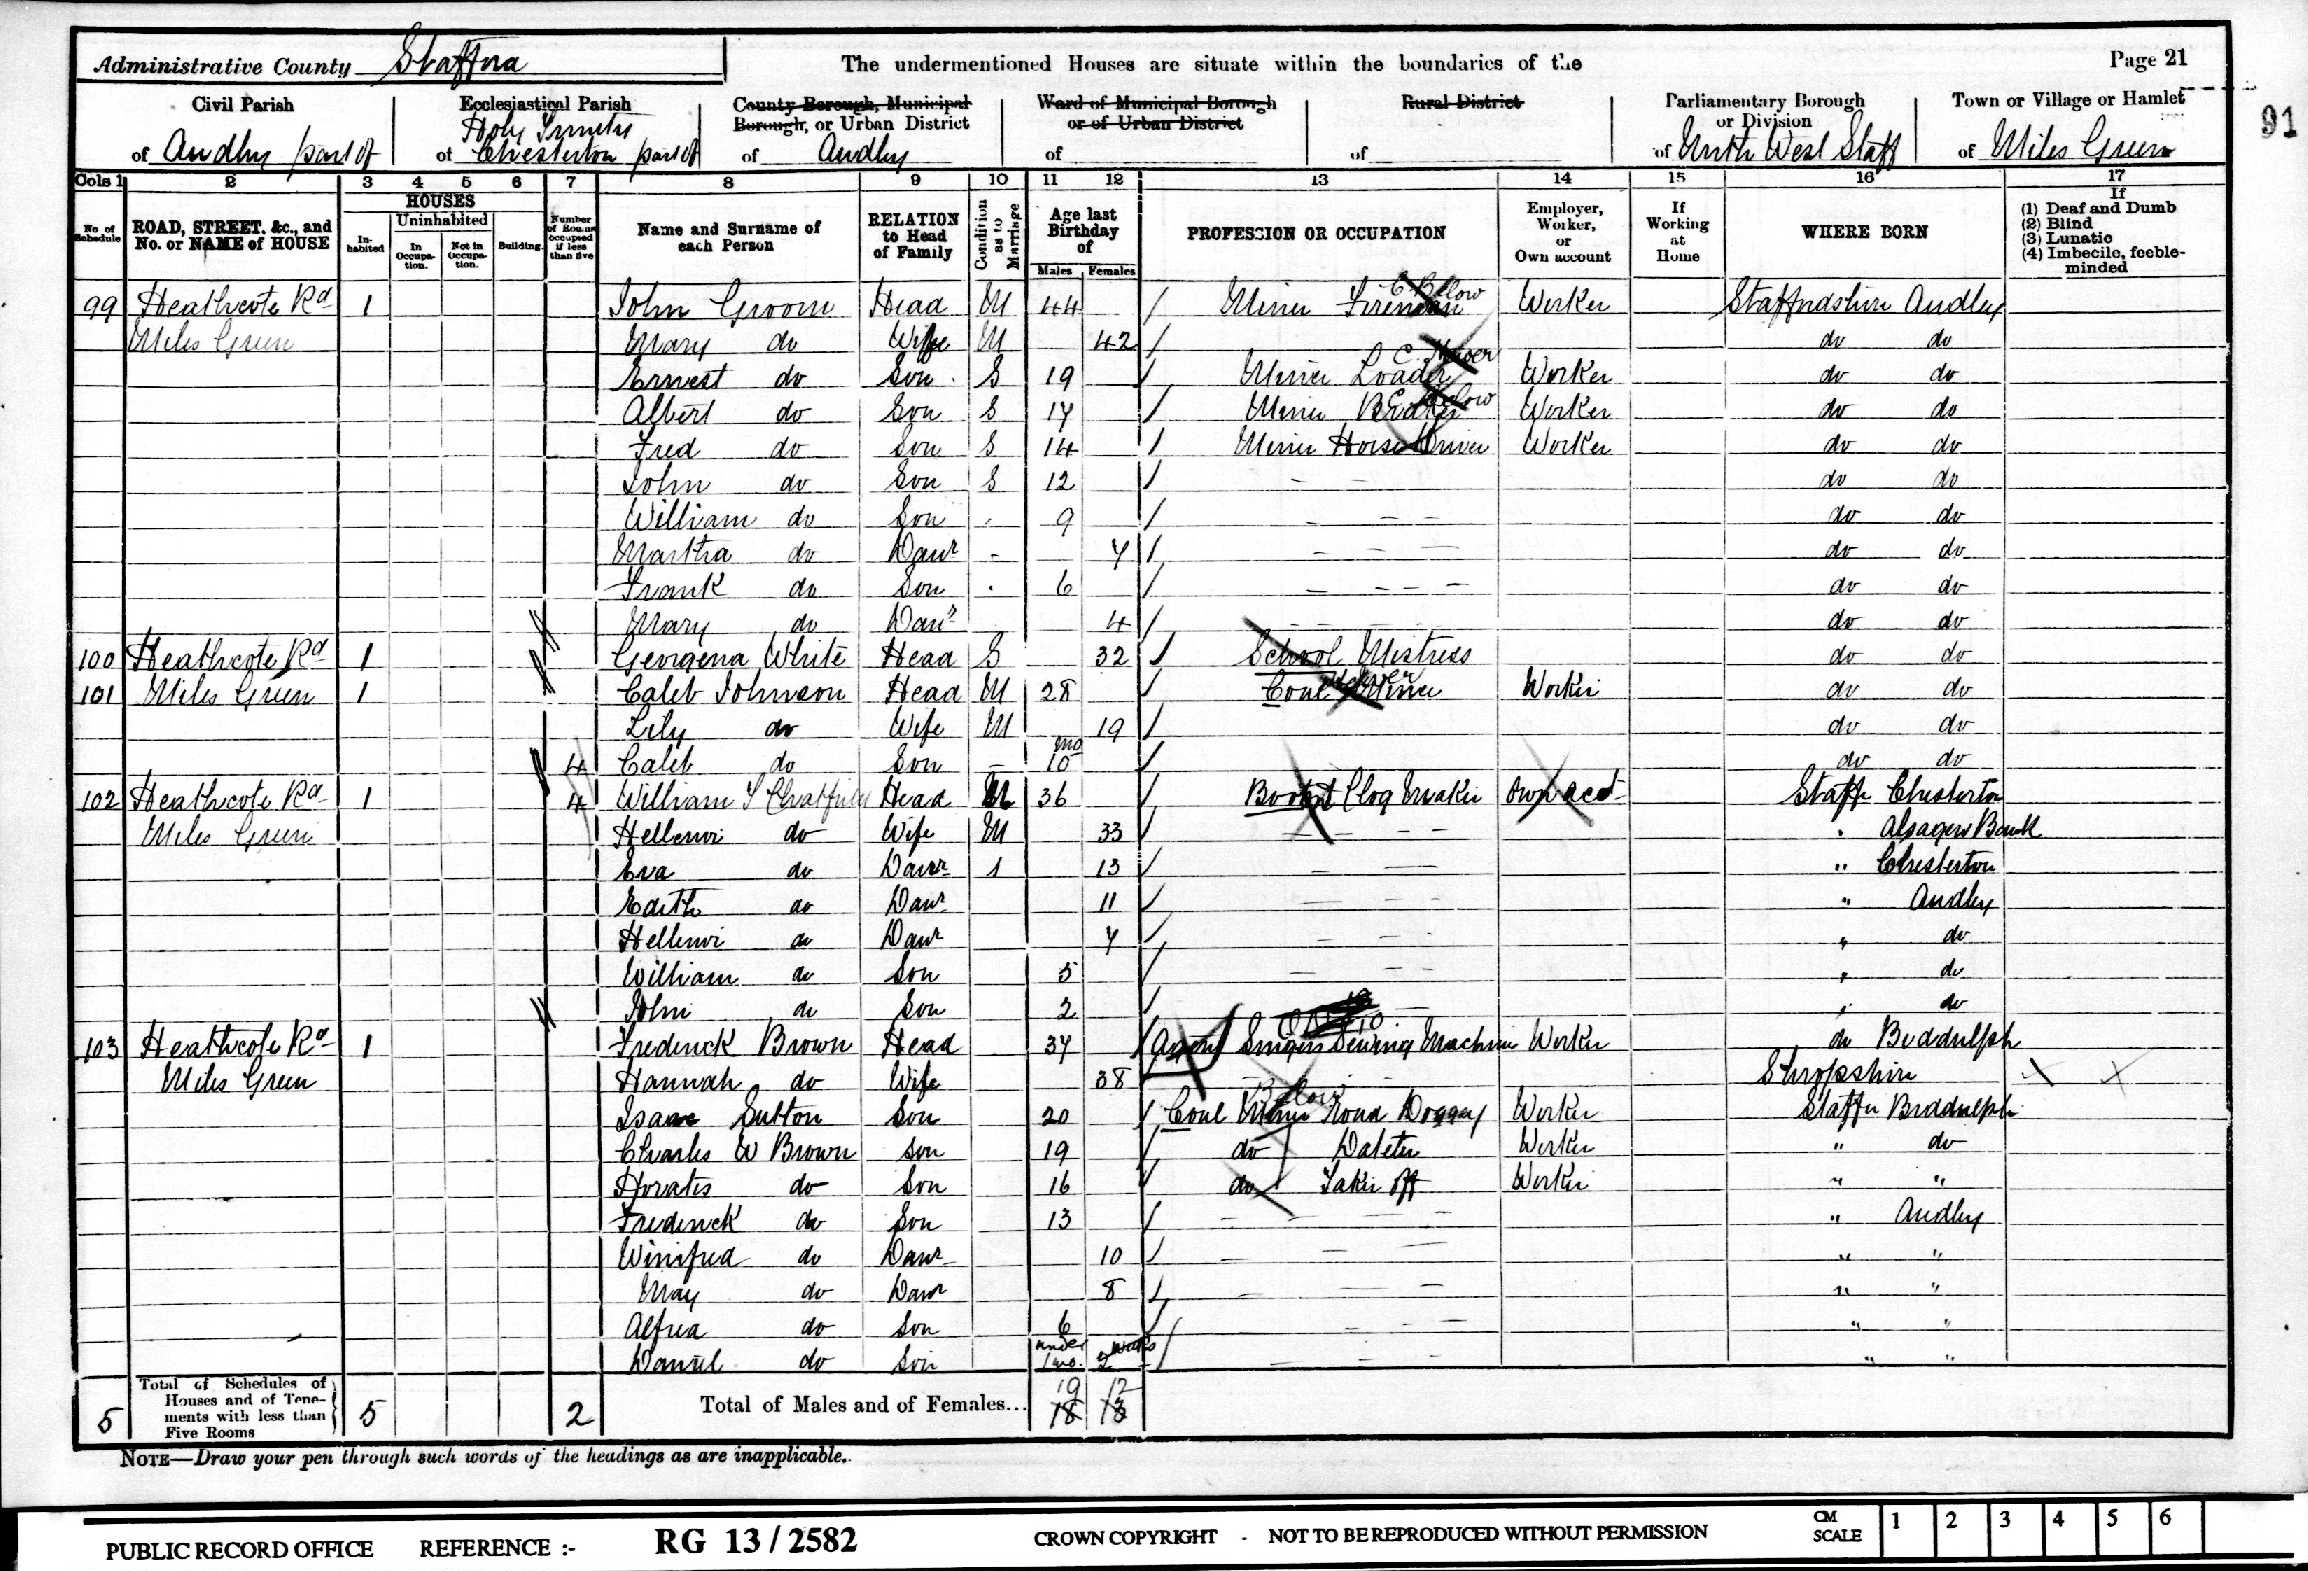 Administrative County Staffna The undermentioned Houses are situate within the boundaries of the Page 21
Civil Parish of Audley part of
Ecclesiastical Parish of Holy Trinity Chesterton part of
County Borough, Municipal Borough, or Urban District of Audley
Ward of Municipal Borough or of Urban District of
Rural District of
Parliamentary Borough or Division of North West Staff
Town or Village or Hamlet of Miles Green
91
Cols 1 2 3 4 5 6 7 8 9 10 11 12 13 14 15 16 17
No. of Schedule
ROAD, STREET, &c., and No. or NAME of HOUSE
HOUSES
Inhabited
Uninhabited
In Occupation.
Not in Occupation.
Building.
Number of Rooms occupied if less than five
Name and Surname of each Person
RELATION to Head of Family
Condition as to Marriage
Age last Birthday of
Males Females
PROFESSION OR OCCUPATION
Employer, Worker, or Own account
If Working at Home
WHERE BORN
If
(1) Deaf and Dumb
(2) Blind
(3) Lunatic
(4) Imbecile, feeble-minded
99 Heathcote Rd 1 John Groom Head M 44 Miner Fireman C Below Worker Staffordshire Audley
Miles Green Mary do Wife M 42 do do
Ernest do Son S 19 Miner Loader C Hewer Worker do do
Albert do Son S 17 Miner C Below Worker do do
Fred do Son S 14 Miner Horse Driver Worker do do
John do Son S 12 - - do do
William do Son 9 - - - do do
Martha do Daur - 7 - - - do do
Frank do Son 6 - - - - do do
Mary do Daur 4 - - - do do
100 Heathcote Rd 1 Georgena White Head S 32 School Mistress do do
101 Miles Green 1 Caleb Johnson Head M 28 Coal Miner Hewer Worker do do
Lily do Wife M 19 do do
4 Caleb do Son - 10 mo do do
102 Heathcote Rd 1 4 William Head M 36 Boot & Clog Maker Own acct Staffs Chesterton
Miles Green do Wife M 33 - - - - " Alsagers Bank
Eva do Daur S 13 - - - " Chesterton
Edith do Daur 11 - - - " Audley
do Daur 7 - - - " do
William do Son 5 - - - " do
John do Son 2 - " do
103 Heathcote Rd 1 Frederick Brown Head 37 Agent Singers Sewing Machine Worker do Biddulph
Miles Green Hannah do Wife 38 - - - Shropshire
Isaac Sutton Son 20 Coal Miner Road Doggey Below Worker Staffs Biddulph
Charles W Brown Son 19 do Worker " do
do Son 16 do Taker off Worker " "
Frederick do Son 13 - - - - " Audley
Winifred do Daur 10 - - - " "
May do Daur 8 - - - " "
Alfred do Son 6 - - - " "
Daniel do Son under 1 mo. 2 weeks - - - " "
5 Total of Schedules of Houses and of Tenements with less than Five Rooms 5 2 Total of Males and of Females... 19 12
18 13
NOTE—Draw your pen through such words of the headings as are inapplicable.
PUBLIC RECORD OFFICE REFERENCE :- RG 13 / 2582 CROWN COPYRIGHT - NOT TO BE REPRODUCED WITHOUT PERMISSION CM SCALE 1 2 3 4 5 6